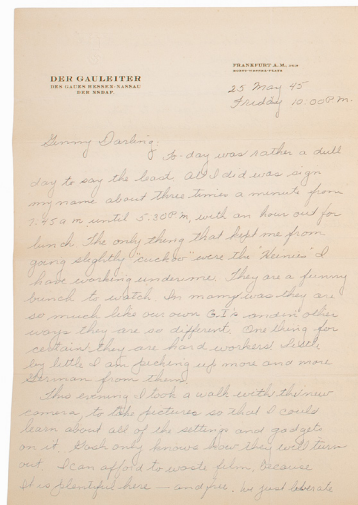 DER GAULEITER
DES GAUES HESSEN-NASSAU
DER NSDAP.
FRANKFURT A. M., DEN
25 May 45
Friday 10:00 P.M.
Darling:
To-day was rather a dull
day to say the least. All I did was sign
my name about three times a minute from
7:45 a.m. until 5:30 P.M. with an hour out for
lunch. The only thing that kept me from
going slightly "cuckoo" were the "Heinies" I
have working under me. They are a funny
bunch to watch. In many ways they are
so much like our own G.I.'s and in other
ways they are so different. One thing for
certain: they are hard workers. Little
by little I am picking up more and more
German from them.
This evening I took a walk with the new
camera, to take pictures so that I could
learn about all of the settings and gadgets
on it. Gosh only knows how they will turn
out. I can afford to waste film, because
it is plentiful here — and free. We just liberate